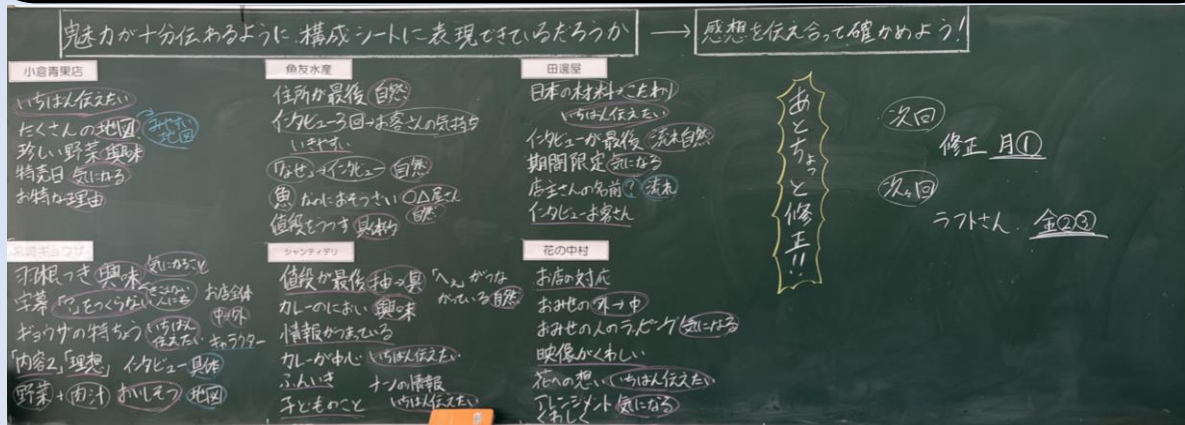 魅力が十分伝わるように、構成シートに表現できているだろうか → 感想を伝え合って確かめよう!
小倉青果店
いちばん伝えたい
たくさんの地図 みやすい地図
珍しい野菜 興味
特売日 気になる
お得な理由
魚友水産
住所が最後 自然
インタビュー3回→お客さんの気持ち
いきやすい
「なぜ」→インタビュー 自然
魚 なのにおそうざい ○△屋さん
自然
値段をうつす 具体的
田邊屋
日本の材料→こだわり
いちばん伝えたい
インタビューが最後 流れ自然
期間限定 気になる
店主さんの名前? 流れ
インタビューお客さん
宮崎ギョウザ
羽根つき 興味 気になること
字幕 「。」をつくらない きこえない人にも
お店全体
中→外
ギョウザの特ちょう いちばん伝えたい キャラクター
「内容2」「理想」 インタビュー 具体
野菜+肉汁 おいしそう 地図
シャンティデリ
値段が最後 抽→具
「へぇ」がつながっている 自然
カレーのにおい 興味
情報がつまっている
カレーがわし いちばん伝えたい
ふんいき ナンの情報
子どものこと いちばん伝えたい
花の中村
お店の対応
おみせの外→中
おみせの人のラッピング 気になる
映像がくわしい
花への想い いちばん伝えたい
アレンジメント 気になる
くわしく
あとちょっと修正!!
次回
修正 月①
次々回
ラフトさん 金②③